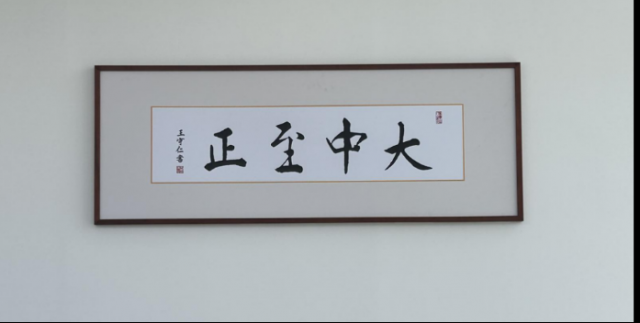 大中至正
王守仁書